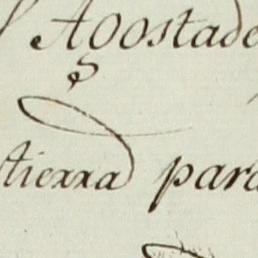 Agostade
tierra para